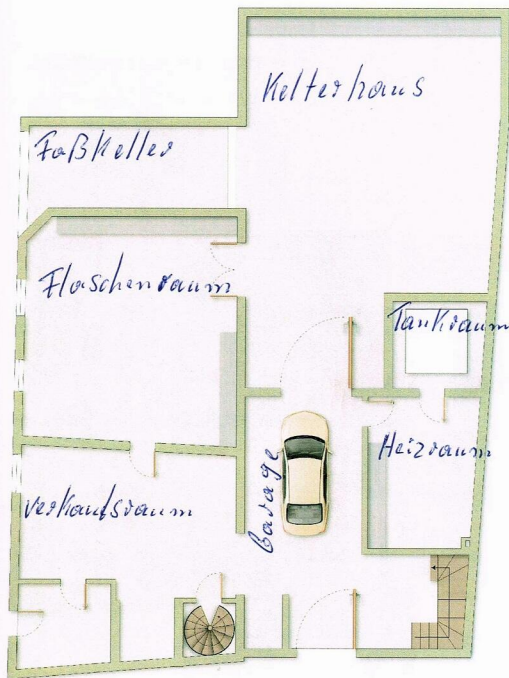 Kelterhaus
Faßkeller
Flaschenraum
Tankraum
Heizraum
Garage
Verkaufsraum